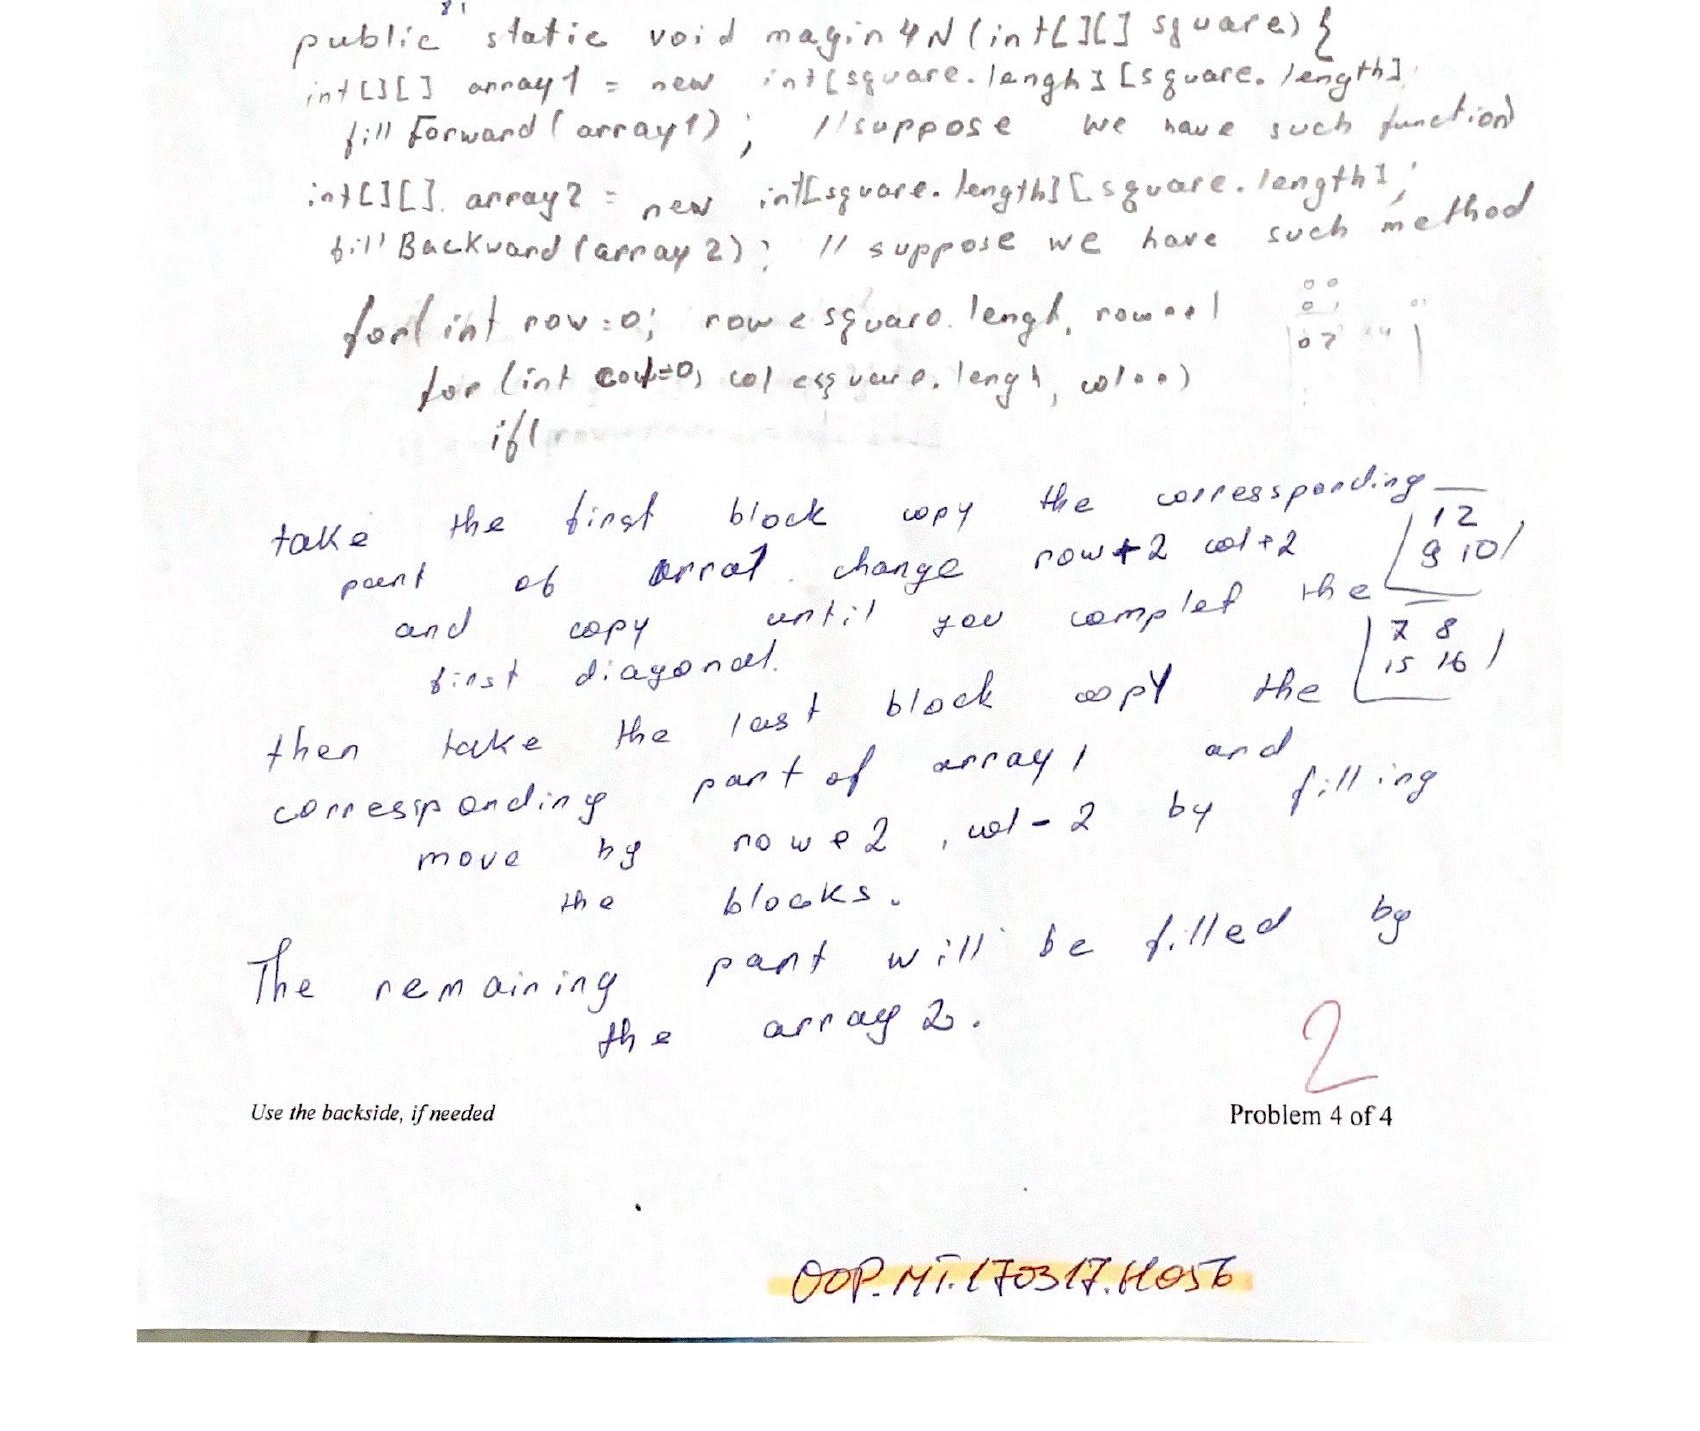 public static void magin4N(int[][] square){
int[][] array1 = new int[square.lengh][square.length]
fill Forward(array1); //suppose we have such function
int[][] array2 = new int[square.length][square.length];
fill Backward(array2); // suppose we have such method
for(int row=0; row<square.lengh, row++)
for(int col=0, col<square.lengh, col++)
if(
take the first block copy the corressponding
12
9 10
part of arra1. change row+2 col+2
and copy until you complet the
7 8
15 16
first diagonal.
then take the last block copy the
corresponding part of array1 and
move by row+2, col-2 by filling
the blocks.
The remaining part will be filled by
the array2.
2
Use the backside, if needed
Problem 4 of 4
OOP.MT.170317.H056